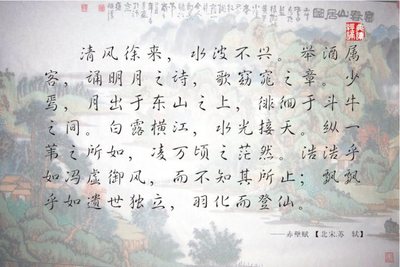 富春山居图
清风徐来，水波不兴。举酒属
客，诵明月之诗，歌窈窕之章。少
焉，月出于东山之上，徘徊于斗牛
之间。白露横江，水光接天。纵一
苇之所如，凌万顷之茫然。浩浩乎
如冯虚御风，而不知其所止；飘飘
乎如遗世独立，羽化而登仙。
——赤壁赋【北宋.苏 轼】